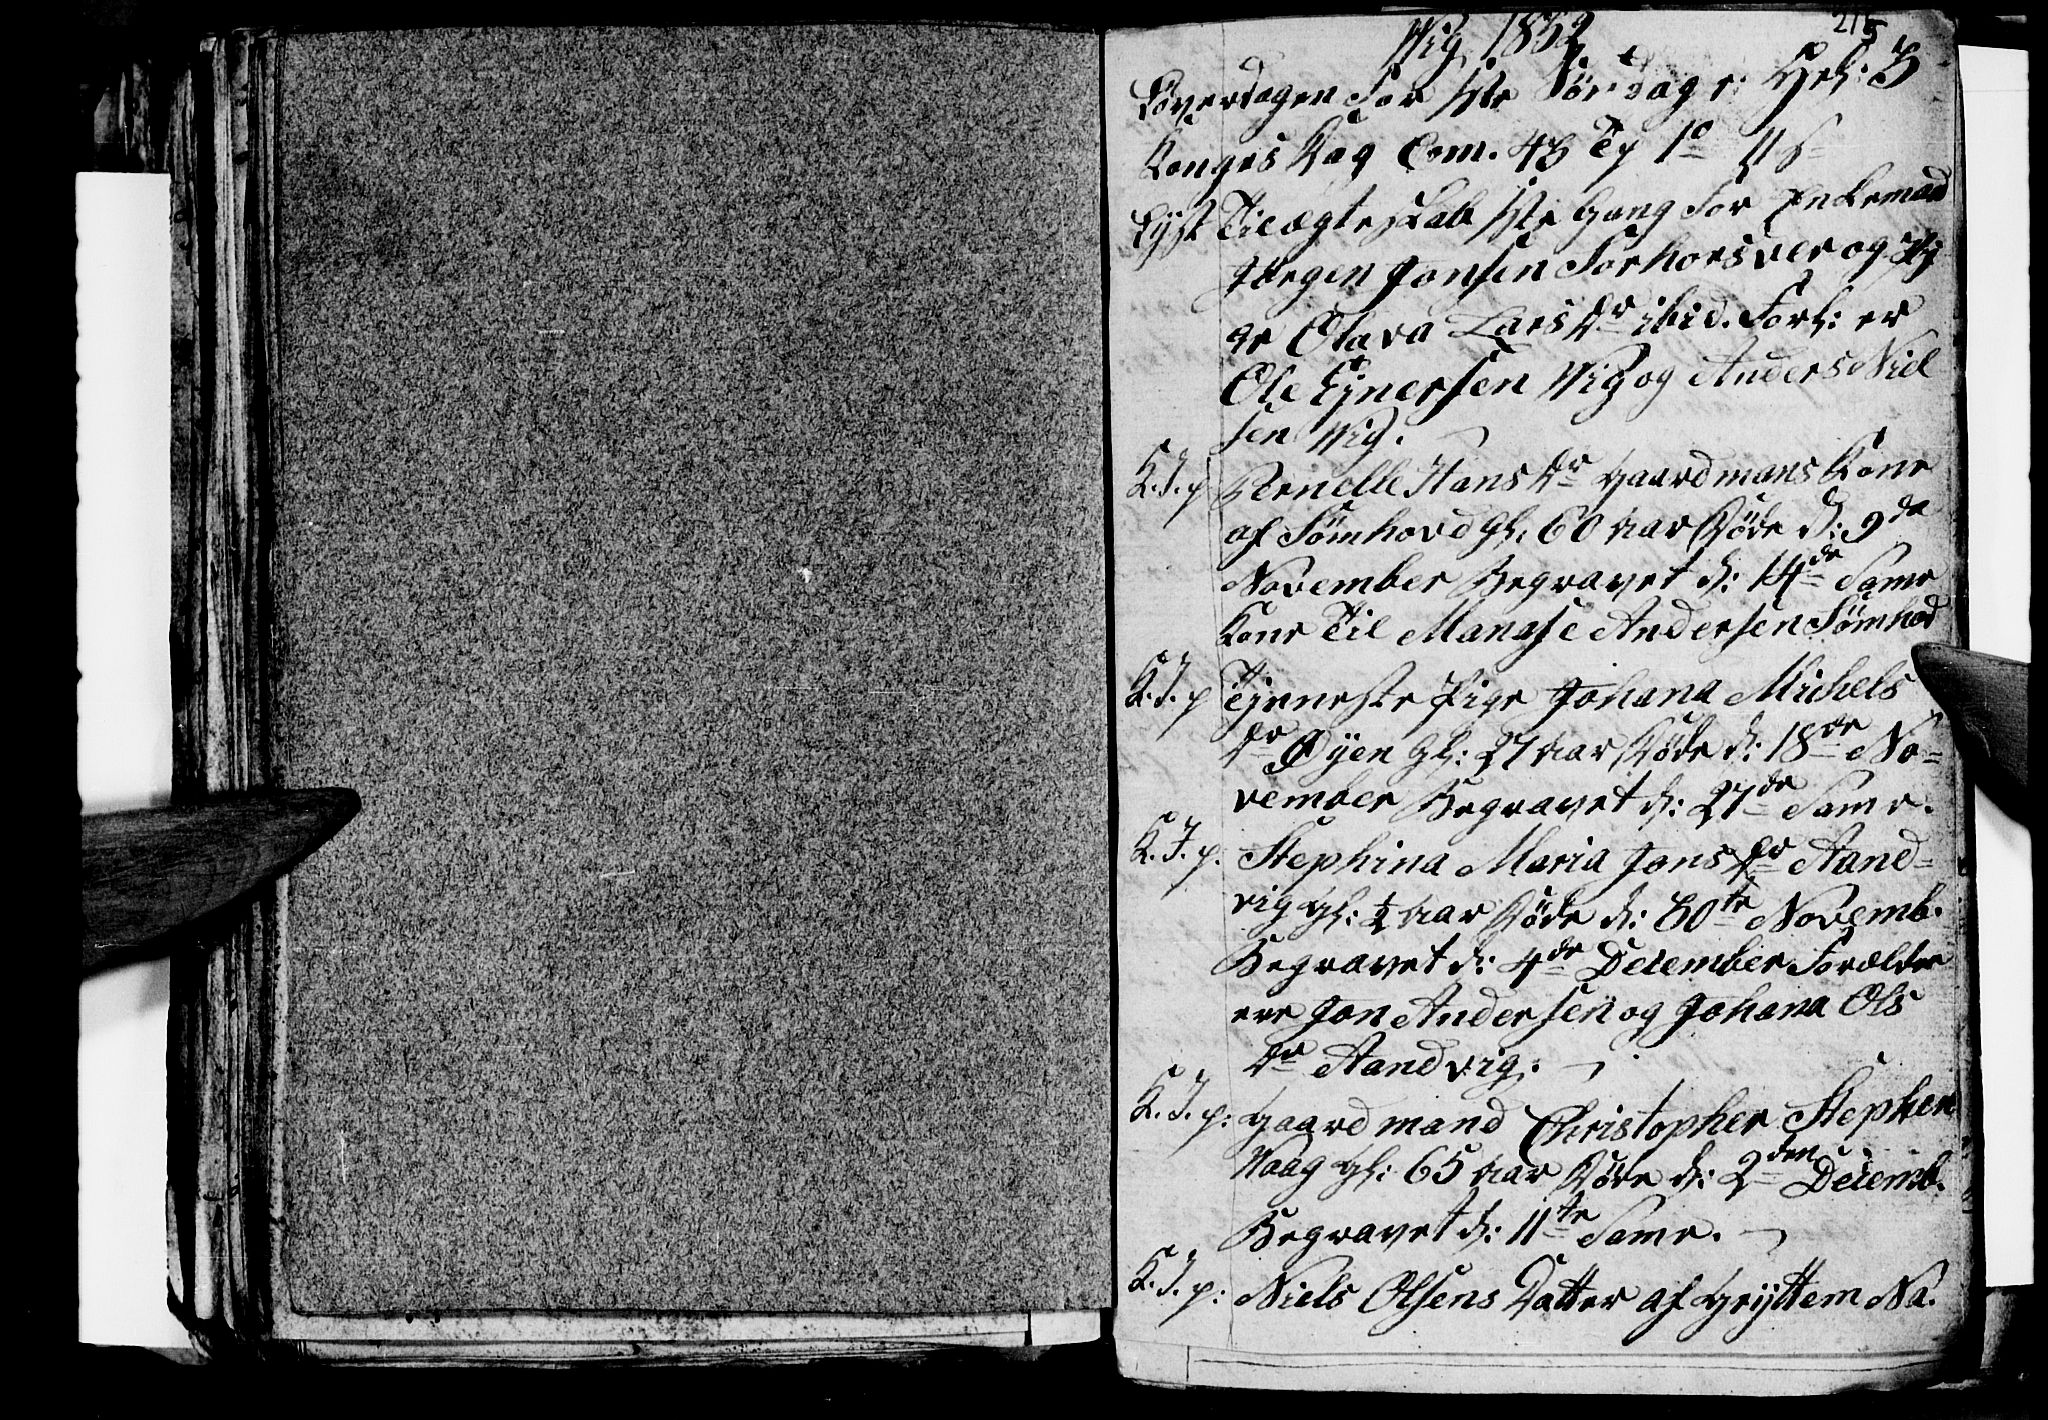 215
Wig 1832
Løverdagen for 1ste Søndag i Hel: 3
Konges Dag Com. 43 Ty 1
Lyst Til ægteskab 1ste Gang for Enkemand
Jørgen Jonsen Forhorsver og Pi
ge Olava Lars Dr ibid. Forl: er
Ole Ejnersen Wig og Anders Niel
sen Wig.
K. J. p. Pernelle Hans Dr Gaardmans Kone
af Sömhovd Gl: 60 Aar Döde d: 9de
November Begravet d: 14de Same
Kone Til Manase Andersen Sömhovd
K. J. p Tjeneste Pige Johana Michels
Dr Øyen Gl: 27 Aar Döde d: 18de No-
vember Begravet d: 27de Same.
K. J. p. Stephina Maria Jons Dr Aand-
vig Gl: ½ Aar Döde d: 30te Novemb.
Begravet d: 4de December Forældre
ere Jon Andersen og Johana Ols
Dr Aandvig.
K. J. p: Gaardmand Christopher Stephen
Waag Gl: 65 Aar Döde d: 2den Decemb.
Begravet d: 11te Same.
K. J. p: Niels Olsens Datter af Gryttem Na.